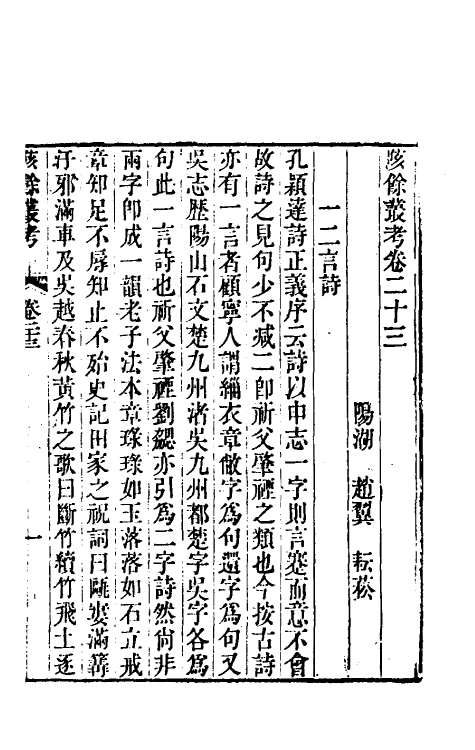 陔餘叢考卷二十三
陽湖 趙翼 耘菘
一二言詩
孔穎達詩正義序云詩以申志一字則言蹇而意不會
故詩之見句少不減二卽祈父肇禋之類也今按古詩
亦有一言者顧寧人謂緇衣章敝字爲句還字爲句又
吳志歷陽山石文楚九州渚吳九州都楚字吳字各爲
句此一言詩也祈父肇禋劉勰亦引爲二字詩然尙非
兩字卽成一韻老子法本章琭琭如玉落落如石立戒
章知足不辱知止不殆史記田家之祝詞曰甌寠滿篝
汙邪滿車及吳越春秋黃竹之歌曰斷竹續竹飛土逐
陔餘叢考 卷二十三 一